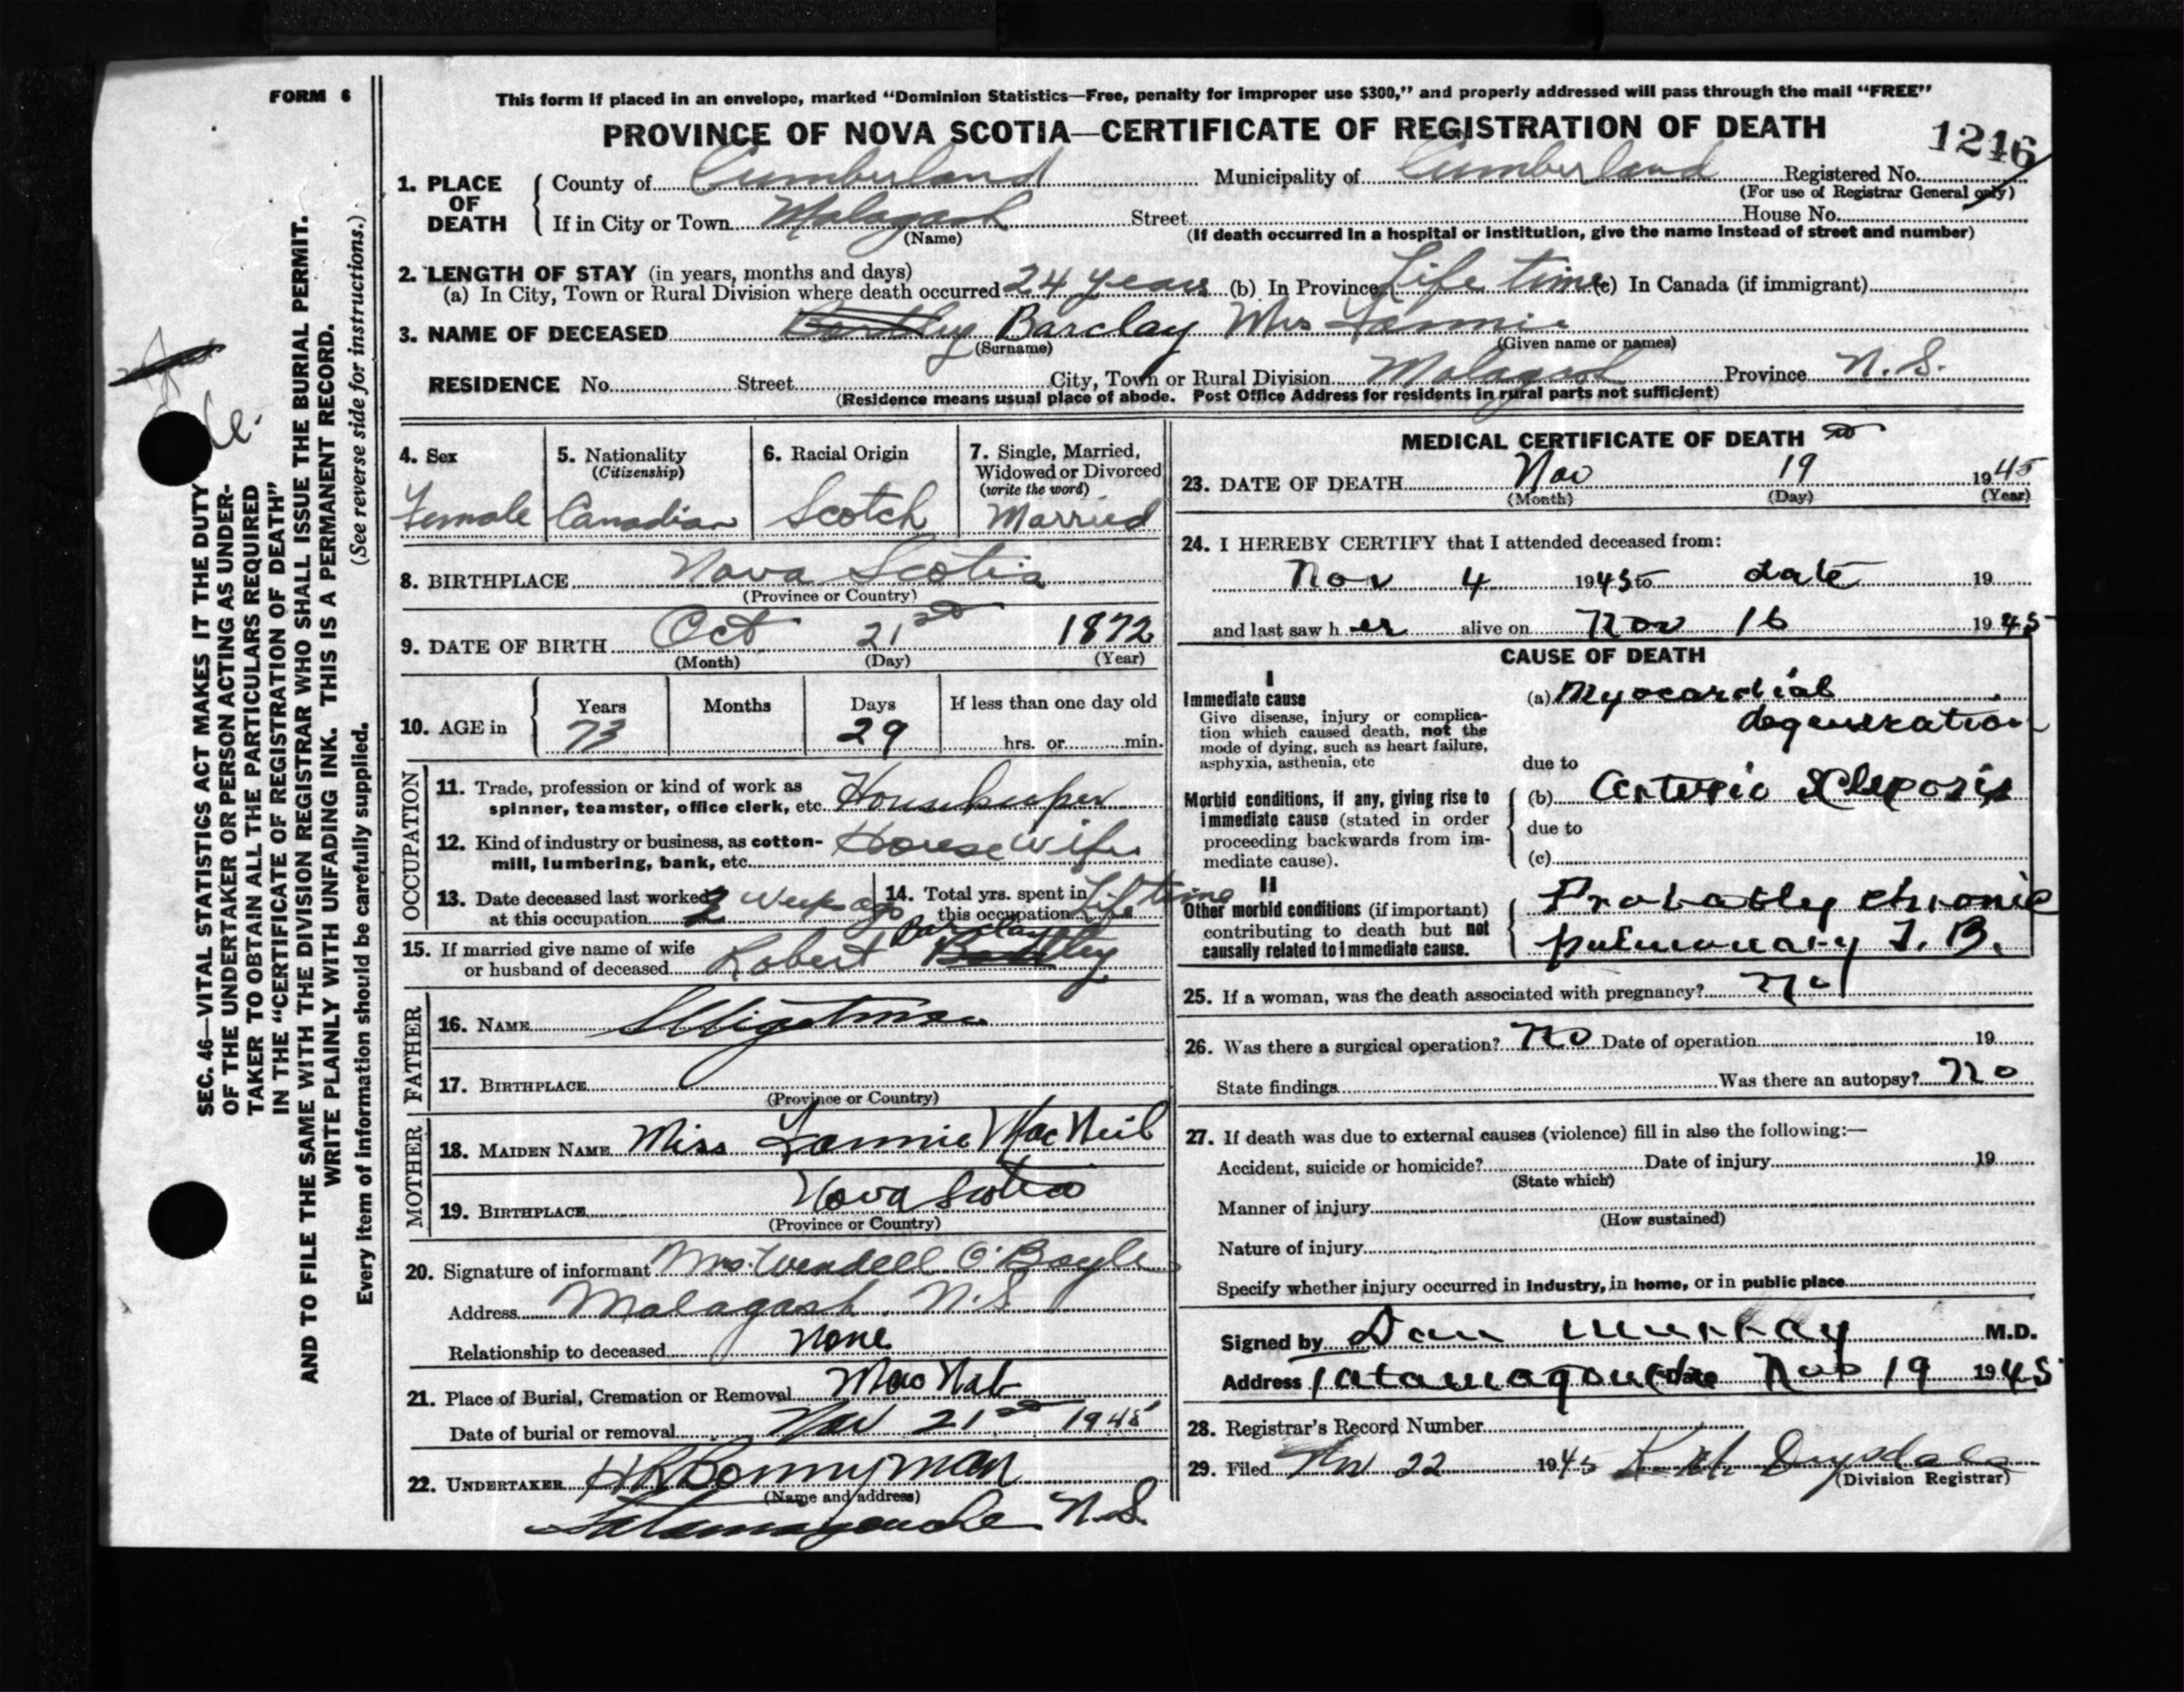 FORM 6
This form if placed in an envelope, marked "Dominion Statistics—Free, penalty for improper use $300," and properly addressed will pass through the mail "FREE"
PROVINCE OF NOVA SCOTIA—CERTIFICATE OF REGISTRATION OF DEATH
1216
1. PLACE OF DEATH { County of Cumberland Municipality of Cumberland Registered No.
(For use of Registrar General only)
If in City or Town Malagash Street House No.
(Name) (If death occurred in a hospital or institution, give the name instead of street and number)
2. LENGTH OF STAY (in years, months and days)
(a) In City, Town or Rural Division where death occurred 24 years (b) In Province Life time (c) In Canada (if immigrant)
3. NAME OF DECEASED Barclay Mrs Fannie
(Surname) (Given name or names)
RESIDENCE No. Street City, Town or Rural Division Malagash Province N.S.
(Residence means usual place of abode. Post Office Address for residents in rural parts not sufficient)
4. Sex 5. Nationality (Citizenship) 6. Racial Origin 7. Single, Married, Widowed or Divorced (write the word)
Female Canadian Scotch Married
8. BIRTHPLACE Nova Scotia
(Province or Country)
9. DATE OF BIRTH Oct 21st 1872
(Month) (Day) (Year)
10. AGE in { Years Months Days If less than one day old
73 29 hrs. or min.
OCCUPATION
11. Trade, profession or kind of work as
spinner, teamster, office clerk, etc. Housekeeper
12. Kind of industry or business, as cotton-
mill, lumbering, bank, etc. House wife
13. Date deceased last worked at this occupation 2 weeks ago 14. Total yrs. spent in this occupation Life time
15. If married give name of wife
or husband of deceased Robert Barclay
FATHER
16. NAME
17. BIRTHPLACE
(Province or Country)
MOTHER
18. MAIDEN NAME Miss Fannie MacNeil
19. BIRTHPLACE Nova Scotia
(Province or Country)
20. Signature of informant Mrs. Wendell O'Boyle
Address Malagash. N.S.
Relationship to deceased None
21. Place of Burial, Cremation or Removal MacNab
Date of burial or removal Nov 21st 1945
22. UNDERTAKER H R Bonnyman
(Name and address)
Tatamagouche N.S.
MEDICAL CERTIFICATE OF DEATH
23. DATE OF DEATH Nov 19 1945
(Month) (Day) (Year)
24. I HEREBY CERTIFY that I attended deceased from:
Nov 4 1945 to date 19
and last saw h er alive on Nov 16 1945
CAUSE OF DEATH
I
Immediate cause (a) Myocardial
degeneration
Give disease, injury or complica-
tion which caused death, not the
mode of dying, such as heart failure,
asphyxia, asthenia, etc
due to
Morbid conditions, if any, giving rise to
immediate cause (stated in order
proceeding backwards from im-
mediate cause).
(b) Arterio Sclerosis
due to
(c)
II
Other morbid conditions (if important)
contributing to death but not
causally related to immediate cause.
Probably chronic
pulmonary T.B.
25. If a woman, was the death associated with pregnancy? No
26. Was there a surgical operation? No Date of operation 19
State findings Was there an autopsy? No
27. If death was due to external causes (violence) fill in also the following:—
Accident, suicide or homicide? Date of injury 19
(State which)
Manner of injury
(How sustained)
Nature of injury
Specify whether injury occurred in industry, in home, or in public place
Signed by Dan Murray M.D.
Address Tatamagouche Date Nov 19 1945
28. Registrar's Record Number
29. Filed Nov 22 1945 Drysdale
(Division Registrar)
SEC. 46—VITAL STATISTICS ACT MAKES IT THE DUTY
OF THE UNDERTAKER OR PERSON ACTING AS UNDER-
TAKER TO OBTAIN ALL THE PARTICULARS REQUIRED
IN THE "CERTIFICATE OF REGISTRATION OF DEATH"
AND TO FILE THE SAME WITH THE DIVISION REGISTRAR WHO SHALL ISSUE THE BURIAL PERMIT.
WRITE PLAINLY WITH UNFADING INK. THIS IS A PERMANENT RECORD.
Every item of information should be carefully supplied. (See reverse side for instructions.)